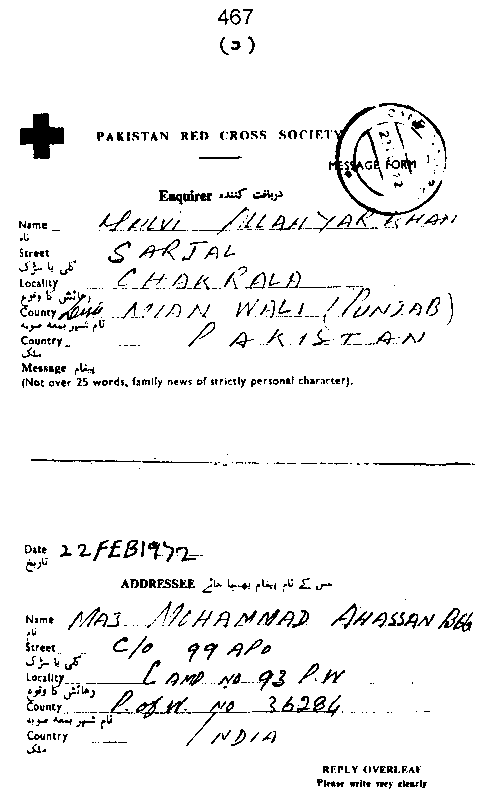 467
(د)
PAKISTAN RED CROSS SOCIETY
MESSAGE FORM
Enquirer دریافت کنندہ
Name MULVI ALLAHYAR KHAN
نام
Street SARJAL
گلی یا سڑک
Locality CHAKRALA
رہائش کا وقوع
County Distt MIAN WALI (PUNJAB)
نام شہر بمعہ صوبہ
Country PAKISTAN
ملک
Message پیغام
(Not over 25 words, family news of strictly personal character).
Date 22 FEB 1972
تاریخ
ADDRESSEE جس کے نام پیغام بھیجا جائے
Name MAJ MOHAMMAD AHASSAN BEG
نام
Street C/o 99 APO
گلی یا سڑک
Locality CAMP NO 93 P.W
رہائش کا وقوع
County P. of W. NO 36284
نام شہر بمعہ صوبہ
Country INDIA
ملک
REPLY OVERLEAF
Please write very clearly